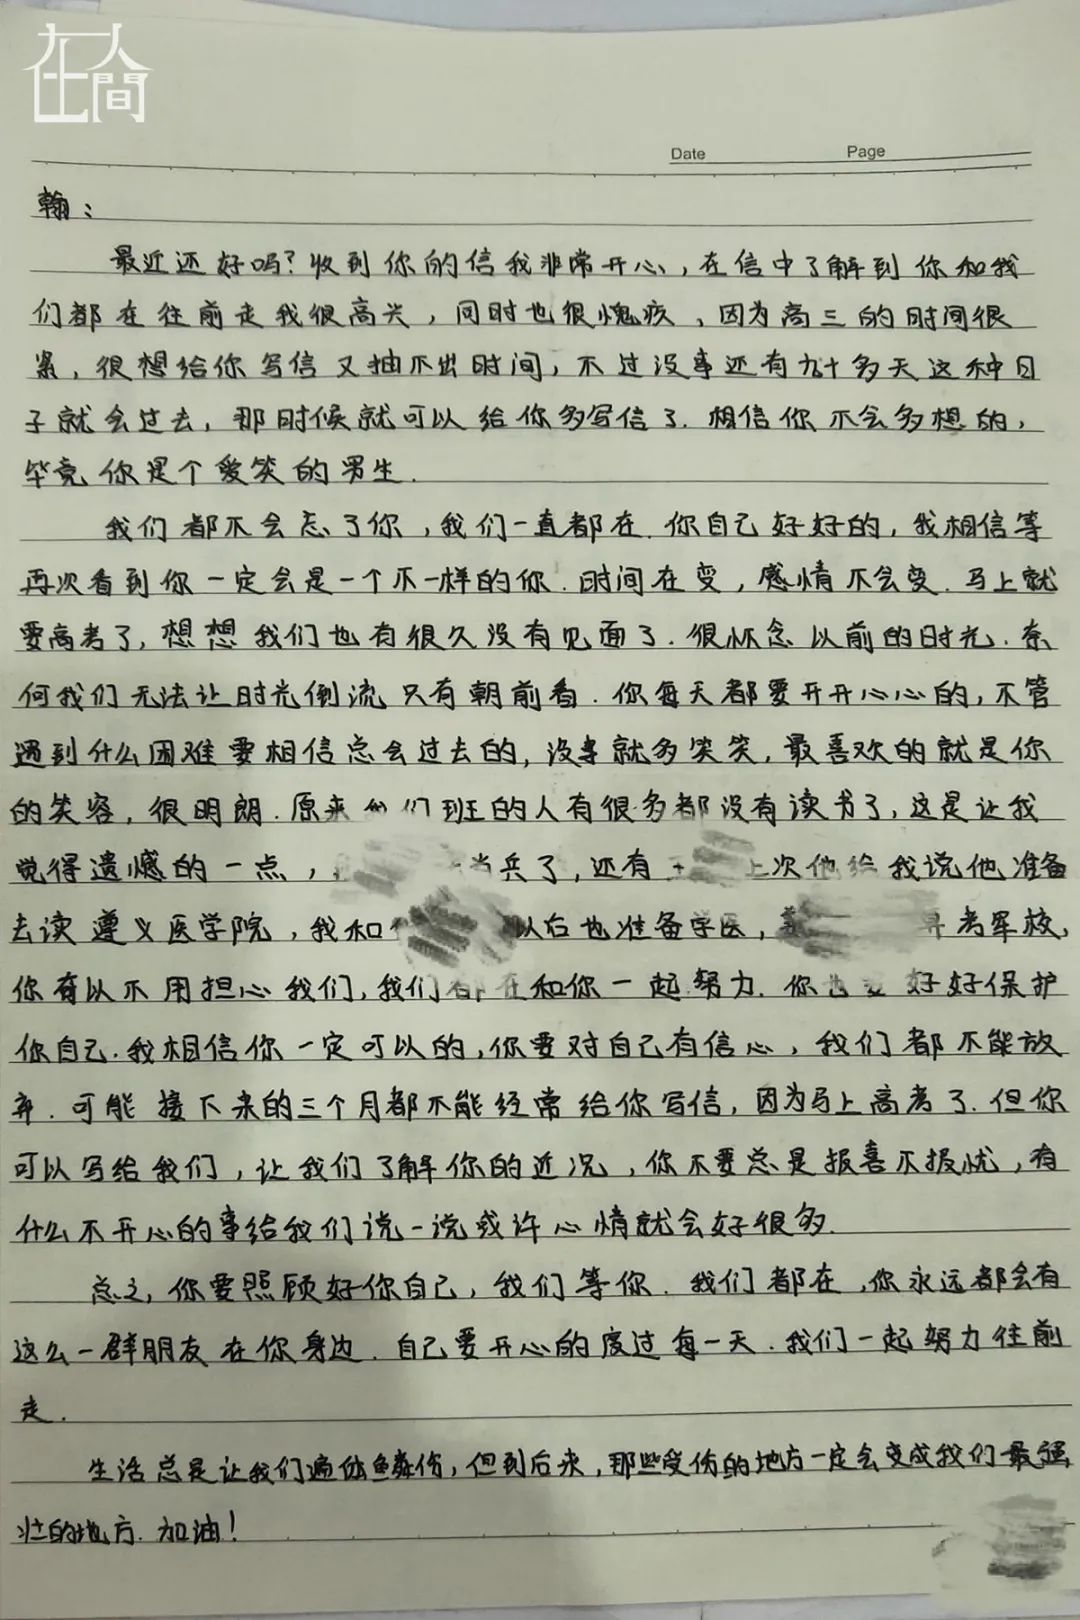 在人間
Date Page
翰：
最近还好吗？收到你的信我非常开心，在信中了解到你和我
们都在往前走我很高兴，同时也很愧疚，因为高三的时间很
紧，很想给你写信又抽不出时间，不过没事还有九十多天这种日
子就会过去，那时候就可以给你多写信了.相信你不会多想的，
毕竟你是个爱笑的男生.
我们都不会忘了你，我们一直都在.你自己好好的，我相信等
再次看到你一定会是一个不一样的你.时间在变，感情不会变.马上就
要高考了，想想我们也有很久没有见面了.很怀念以前的时光.奈
何我们无法让时光倒流只有朝前看.你每天都要开开心心的，不管
遇到什么困难要相信总会过去的，没事就多笑笑，最喜欢的就是你
的笑容，很明朗.原来我们班的人有很多都没有读书了，这是让我
觉得遗憾的一点，当兵了，还有上次他给我说他准备
去读遵义医学院，我和以后也准备学医，考军校，
你有以不用担心我们，我们都在和你一起努力.你也要好好保护
你自己.我相信你一定可以的，你要对自己有信心，我们都不能放
弃.可能接下来的三个月都不能经常给你写信，因为马上高考了.但你
可以写给我们，让我们了解你的近况，你不要总是报喜不报忧，有
什么不开心的事给我们说一说或许心情就会好很多.
总之，你要照顾好你自己，我们等你.我们都在，你永远都会有
这么一群朋友在你身边.自己要开心的度过每一天.我们一起努力往前
走.
生活总是让我们遍体鳞伤，但到后来，那些受伤的地方一定会变成我们最强
壮的地方.加油！